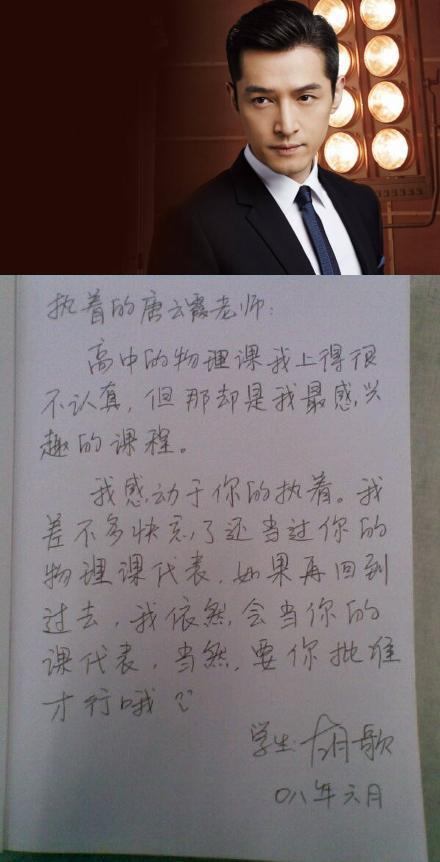 执着的唐云霞老师:
高中的物理课我上得很
不认真,但那却是我最感兴
趣的课程。
我感动于你的执着。我
差不多快忘了还当过你的
物理课代表,如果再回到
过去,我依然会当你的
课代表,当然,要你批准
才行哦
学生:胡歌
08年六月